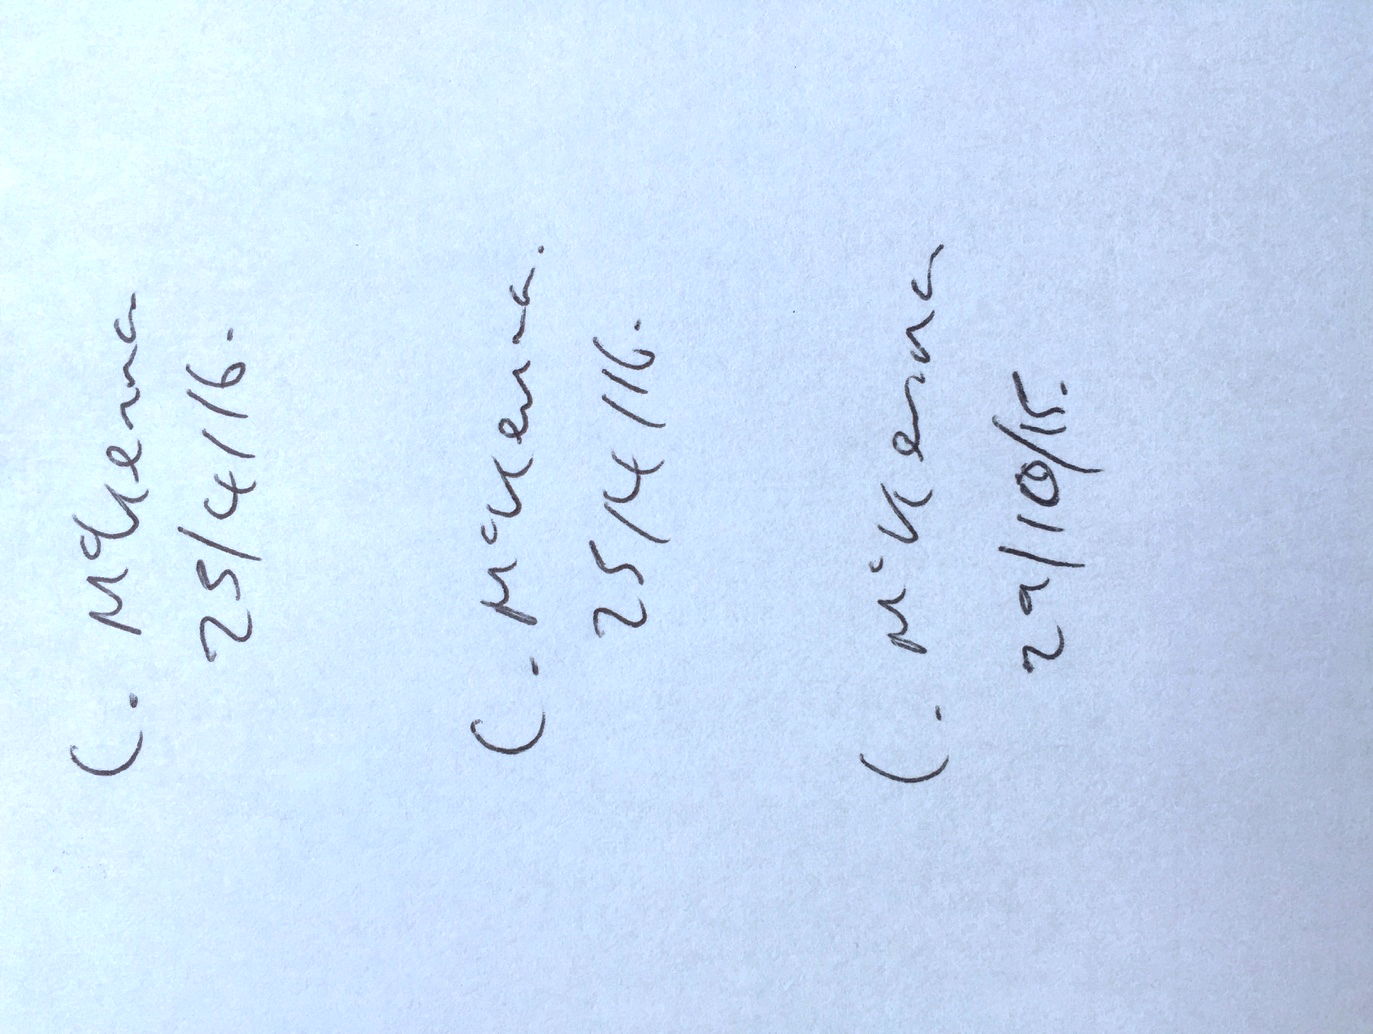 C. McKenna
25/4/16.
C. McKenna.
25/4/16.
C. McKenna
29/10/15.